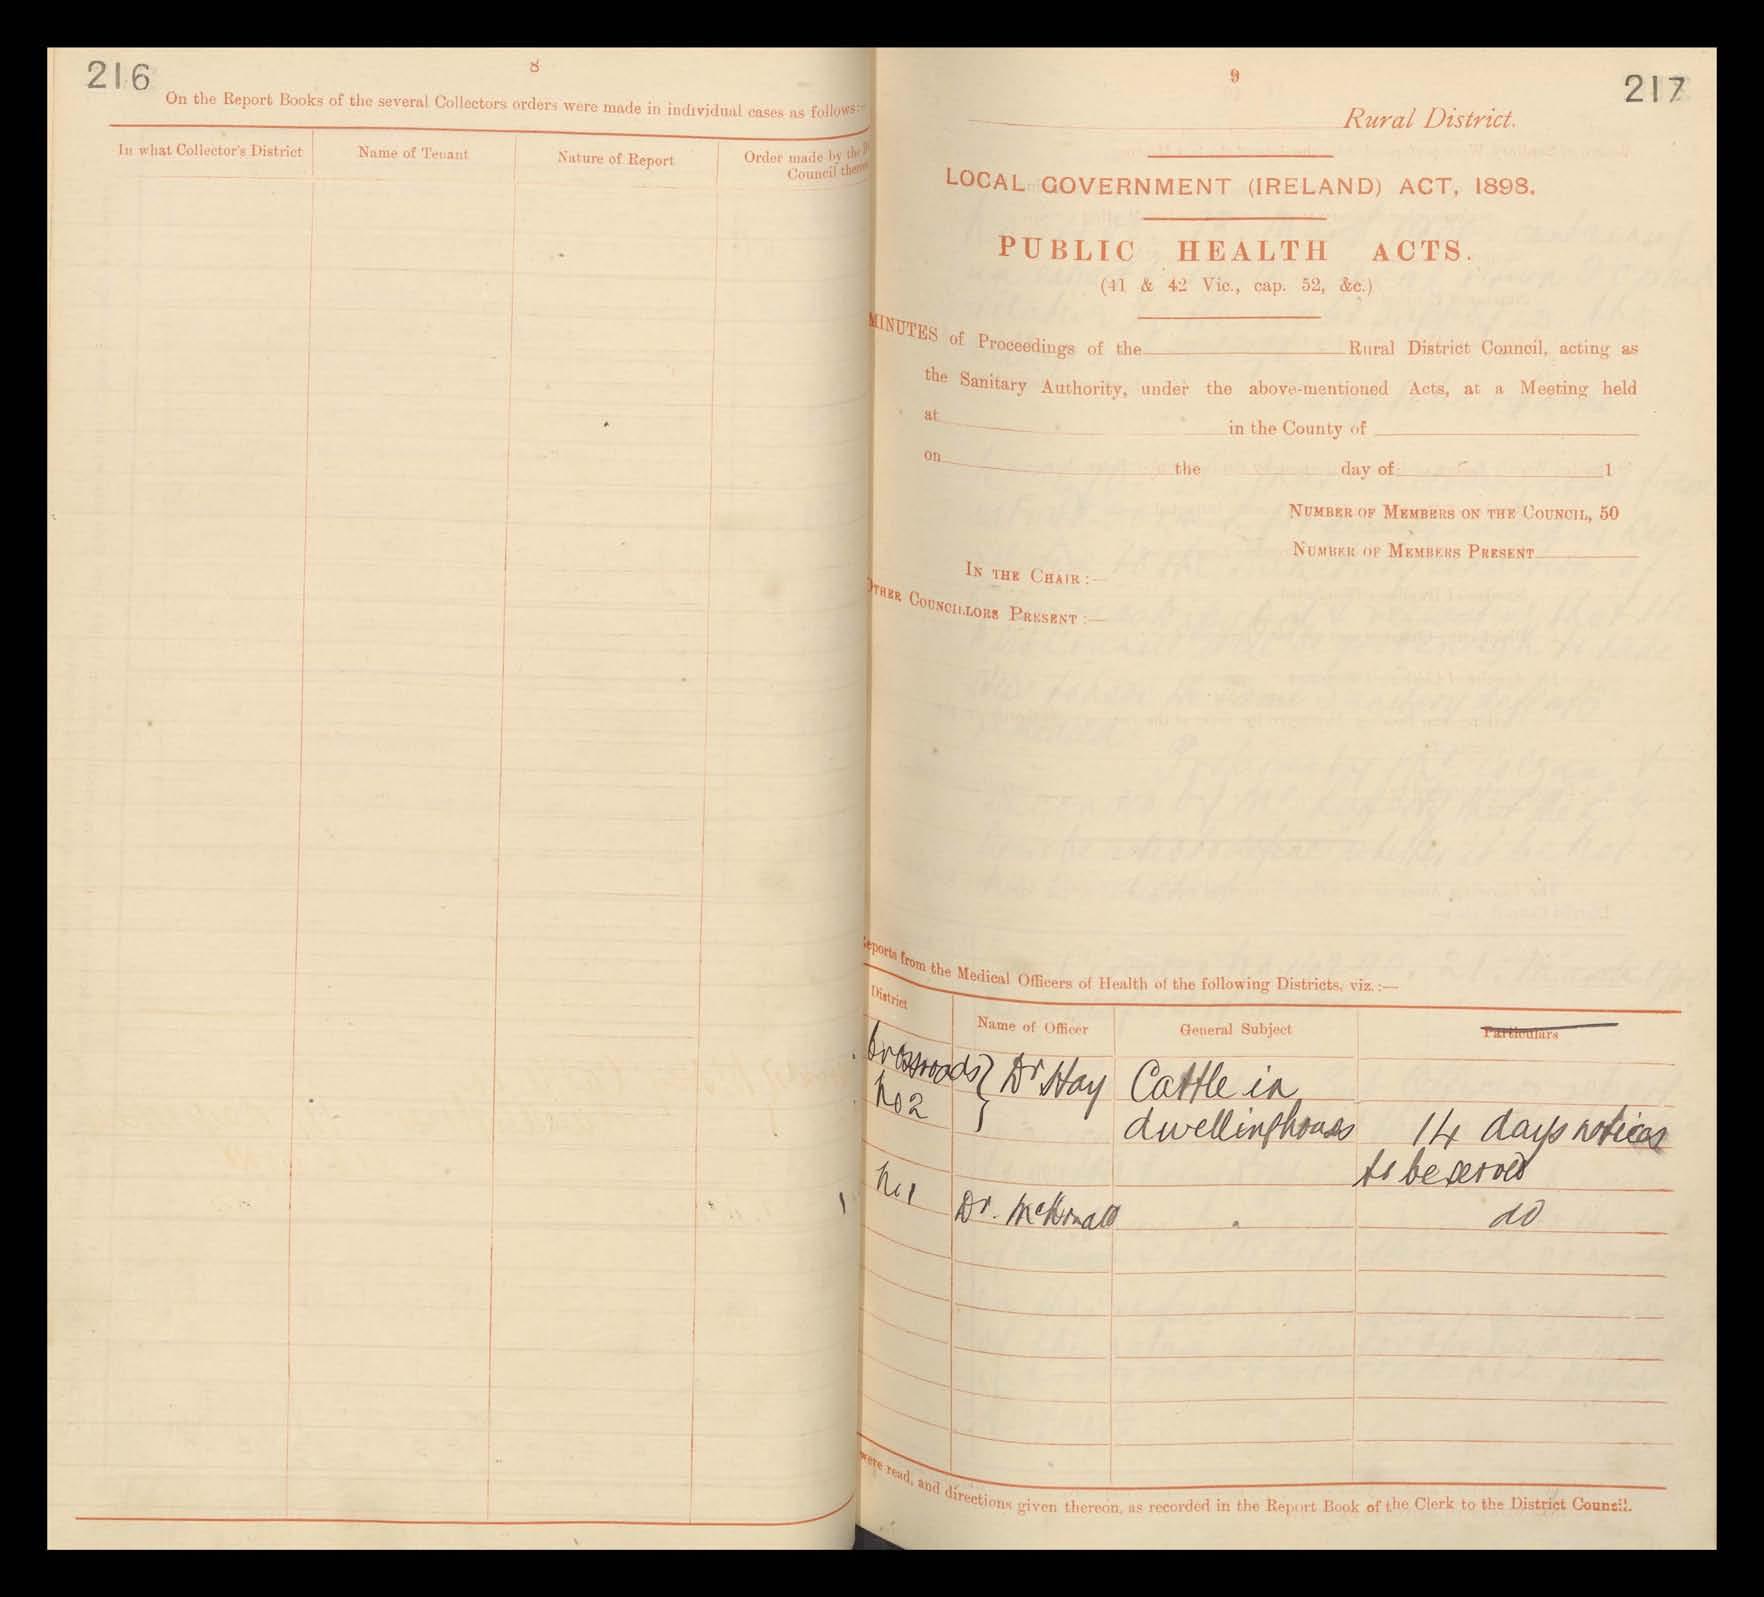 216
8
On the Report Books of the several Collectors orders were made in individual cases as follows:—
In what Collector's District
Name of Tenant
Nature of Report
Order made by the
Council
9
217
Rural District.
LOCAL GOVERNMENT (IRELAND) ACT, 1898.
PUBLIC HEALTH ACTS.
(41 & 42 Vic., cap. 52, &c.)
MINUTES of Proceedings of the Rural District Council, acting as
the Sanitary Authority, under the above-mentioned Acts, at a Meeting held
at in the County of
on the day of 1
NUMBER OF MEMBERS ON THE COUNCIL, 50
NUMBER OF MEMBERS PRESENT
IN THE CHAIR :—
OTHER COUNCILLORS PRESENT :—
Reports from the Medical Officers of Health of the following Districts, viz. :—
District
Name of Officer
General Subject
Particulars
Crossroads } Dr Hay Cattle in
No 2 dwellinghouses 14 days notices
to be served
No 1 Dr. do
were read, and directions given thereon, as recorded in the Report Book of the Clerk to the District Council.